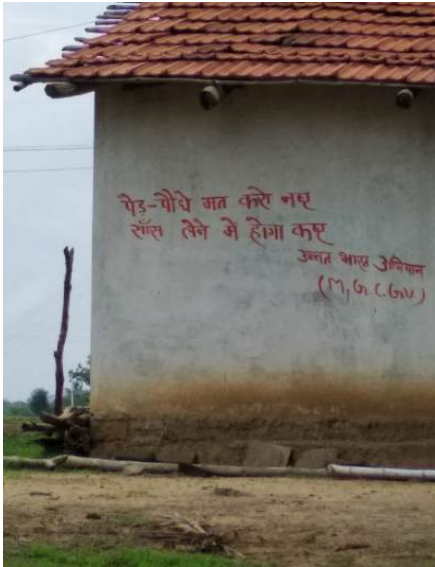 पेड़-पौधे मत करो नष्ट
साँस लेने में होगा कष्ट
उन्नत भारत अभियान
(M.G.C.G.V.)